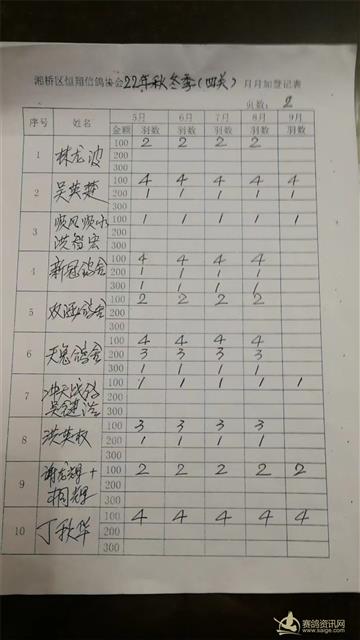 湘桥区恒翔信鸽协会22年秋冬季(四关)月月如登记表
页数: 2
序号 姓名 5月 6月 7月 8月 9月
金额 羽数 羽数 羽数 羽数 羽数
1 林龙波 100 2 2 2 2
200
300
2 吴英楚 100 4 4 4 4 4
200 1 1 1 1 1
300
3 顺风顺水 100 1 1 1 1 1
洪裕宏 200
300
4 新冠鸽舍 100 4 4 4 4
200 1 1 1 1
300 1 1 1 1
5 双涵鸽舍 100 2 2 2 2
200
300
6 天兔鸽舍 100 4 4 4 4
200 3 3 3 3
300 1 1 1 1
7 冲天战鸽 100 1 1 1 1 1
吴建浩 200
300
8 洪英权 100 3 3 3 3
200 1 1 1 1
300
9 谢龙辉+ 100 2 2 2 2 2
辉 200
300
10 丁秋华 100 4 4 4 4 4
200
300
赛鸽资讯网
www.saige.com